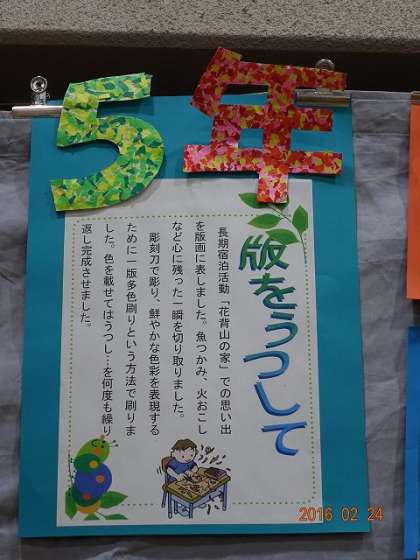 5年
版をうつして
長期宿泊活動「花背山の家」での思い出
を版画に表しました。魚つかみ、火おこし
など心に残った一瞬を切り取りました。
彫刻刀で彫り、鮮やかな色彩を表現する
ために一版多色刷りという方法で刷りま
した。色を載せてはうつし…を何度も繰り
返し完成させました。
2016 02 24